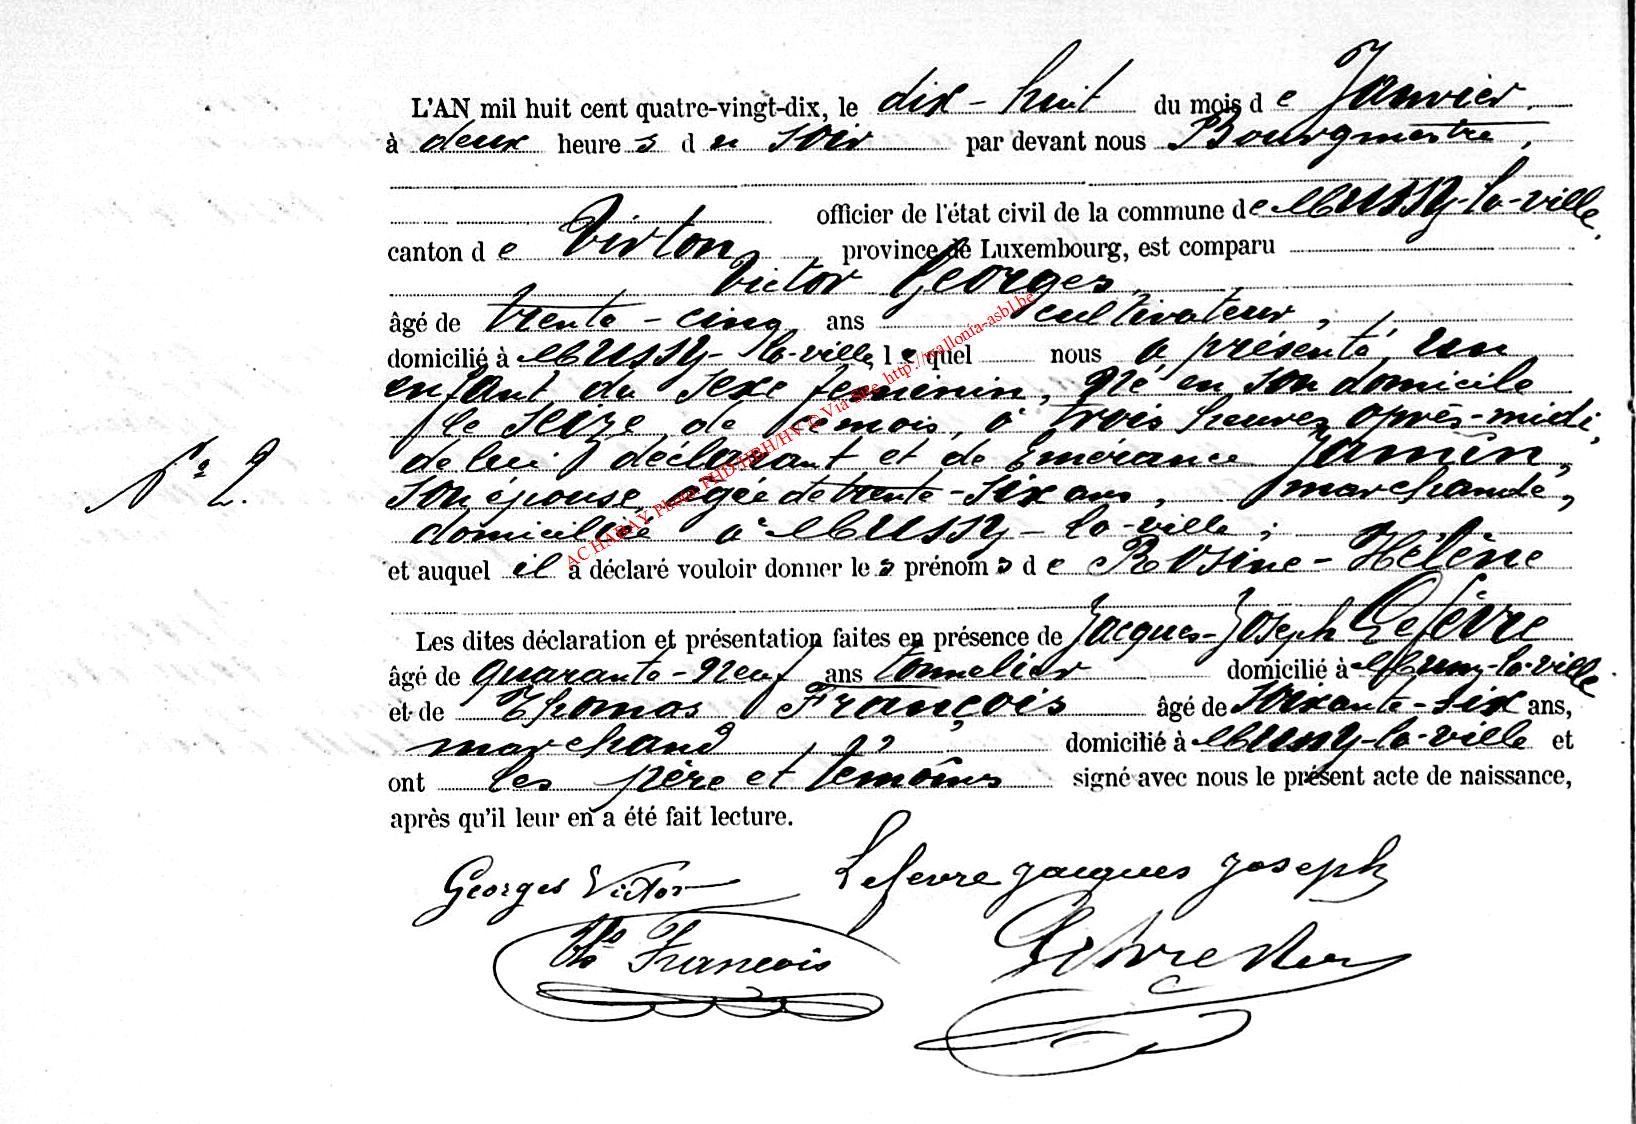 L'AN mil huit cent quatre-vingt-dix, le dix-huit du mois de Janvier
à deux heures du soir par devant nous Bourgmestre,
officier de l'état civil de la commune de Mussy-la-ville,
canton de Virton, province de Luxembourg, est comparu
Victor Georges,
âgé de trente-cinq ans cultivateur,
domicilié à Mussy-la-ville, lequel nous a présenté un
enfant du sexe féminin, né en son domicile
le seize de ce mois, à trois heures après-midi,
de lui déclarant et de Emérance Jamin,
N° 2.
son épouse, agée de trente-six ans, marchande,
domiciliée à Mussy-la-ville;
et auquel il a déclaré vouloir donner les prénoms de Rosine-Hélène
Les dites déclaration et présentation faites en présence de Jacques-Joseph Lefèvre
âgé de quarante-neuf ans tonnelier domicilié à Mussy-la-ville
et de Thomas François âgé de soixante-six ans,
marchand domicilié à Mussy-la-ville et
ont les père et témoins signé avec nous le présent acte de naissance,
après qu'il leur en a été fait lecture.
Georges Victor Lefevre jacques joseph
Ths François
AC HABAY Photo PHD/HBH/HV © Via Site http://wallonia-asbl.be